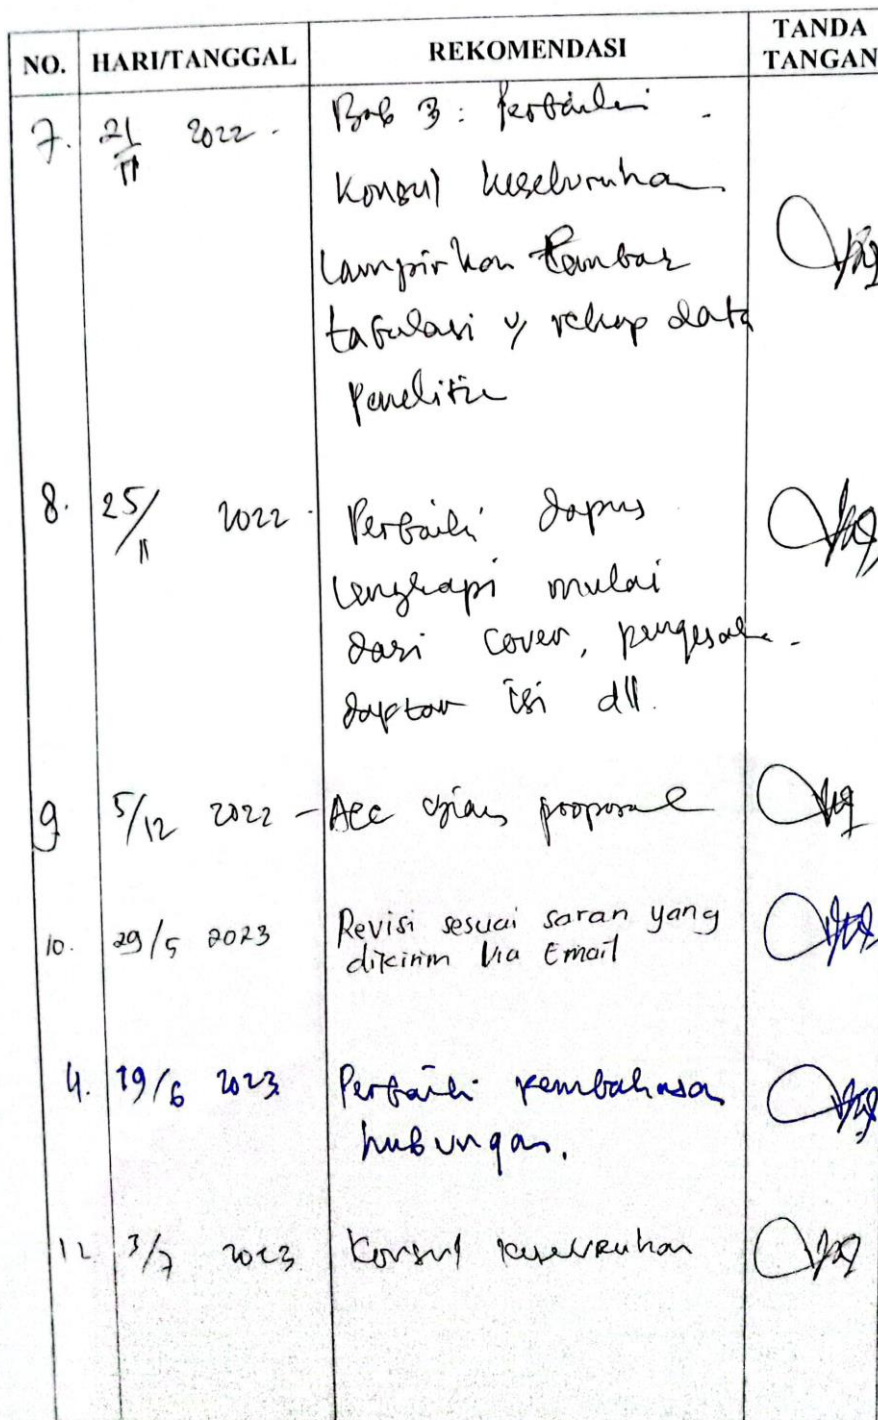 NO. HARI/TANGGAL REKOMENDASI TANDA TANGAN
7. 21/11 2022. Bab 3 : Perbaiki.
Konsul keseluruhan
Lampirkan lembar
tabulasi u/ rekap data
Penelitian
8. 25/11 2022. Perbaiki dapus
lengkapi mulai
dari cover, pengesahan
daptar isi dll.
9 5/12 2022 - Acc ujian proposal
10. 29/5 2023 Revisi sesuai saran yang
dikirim Via Email
11. 19/6 2023 Perbaiki pembahasan
hubungan.
12 3/7 2023 Konsul keseluruhan